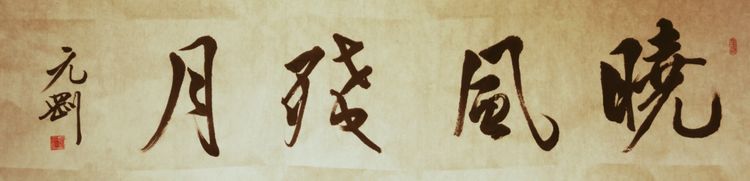 曉風殘月
元剛